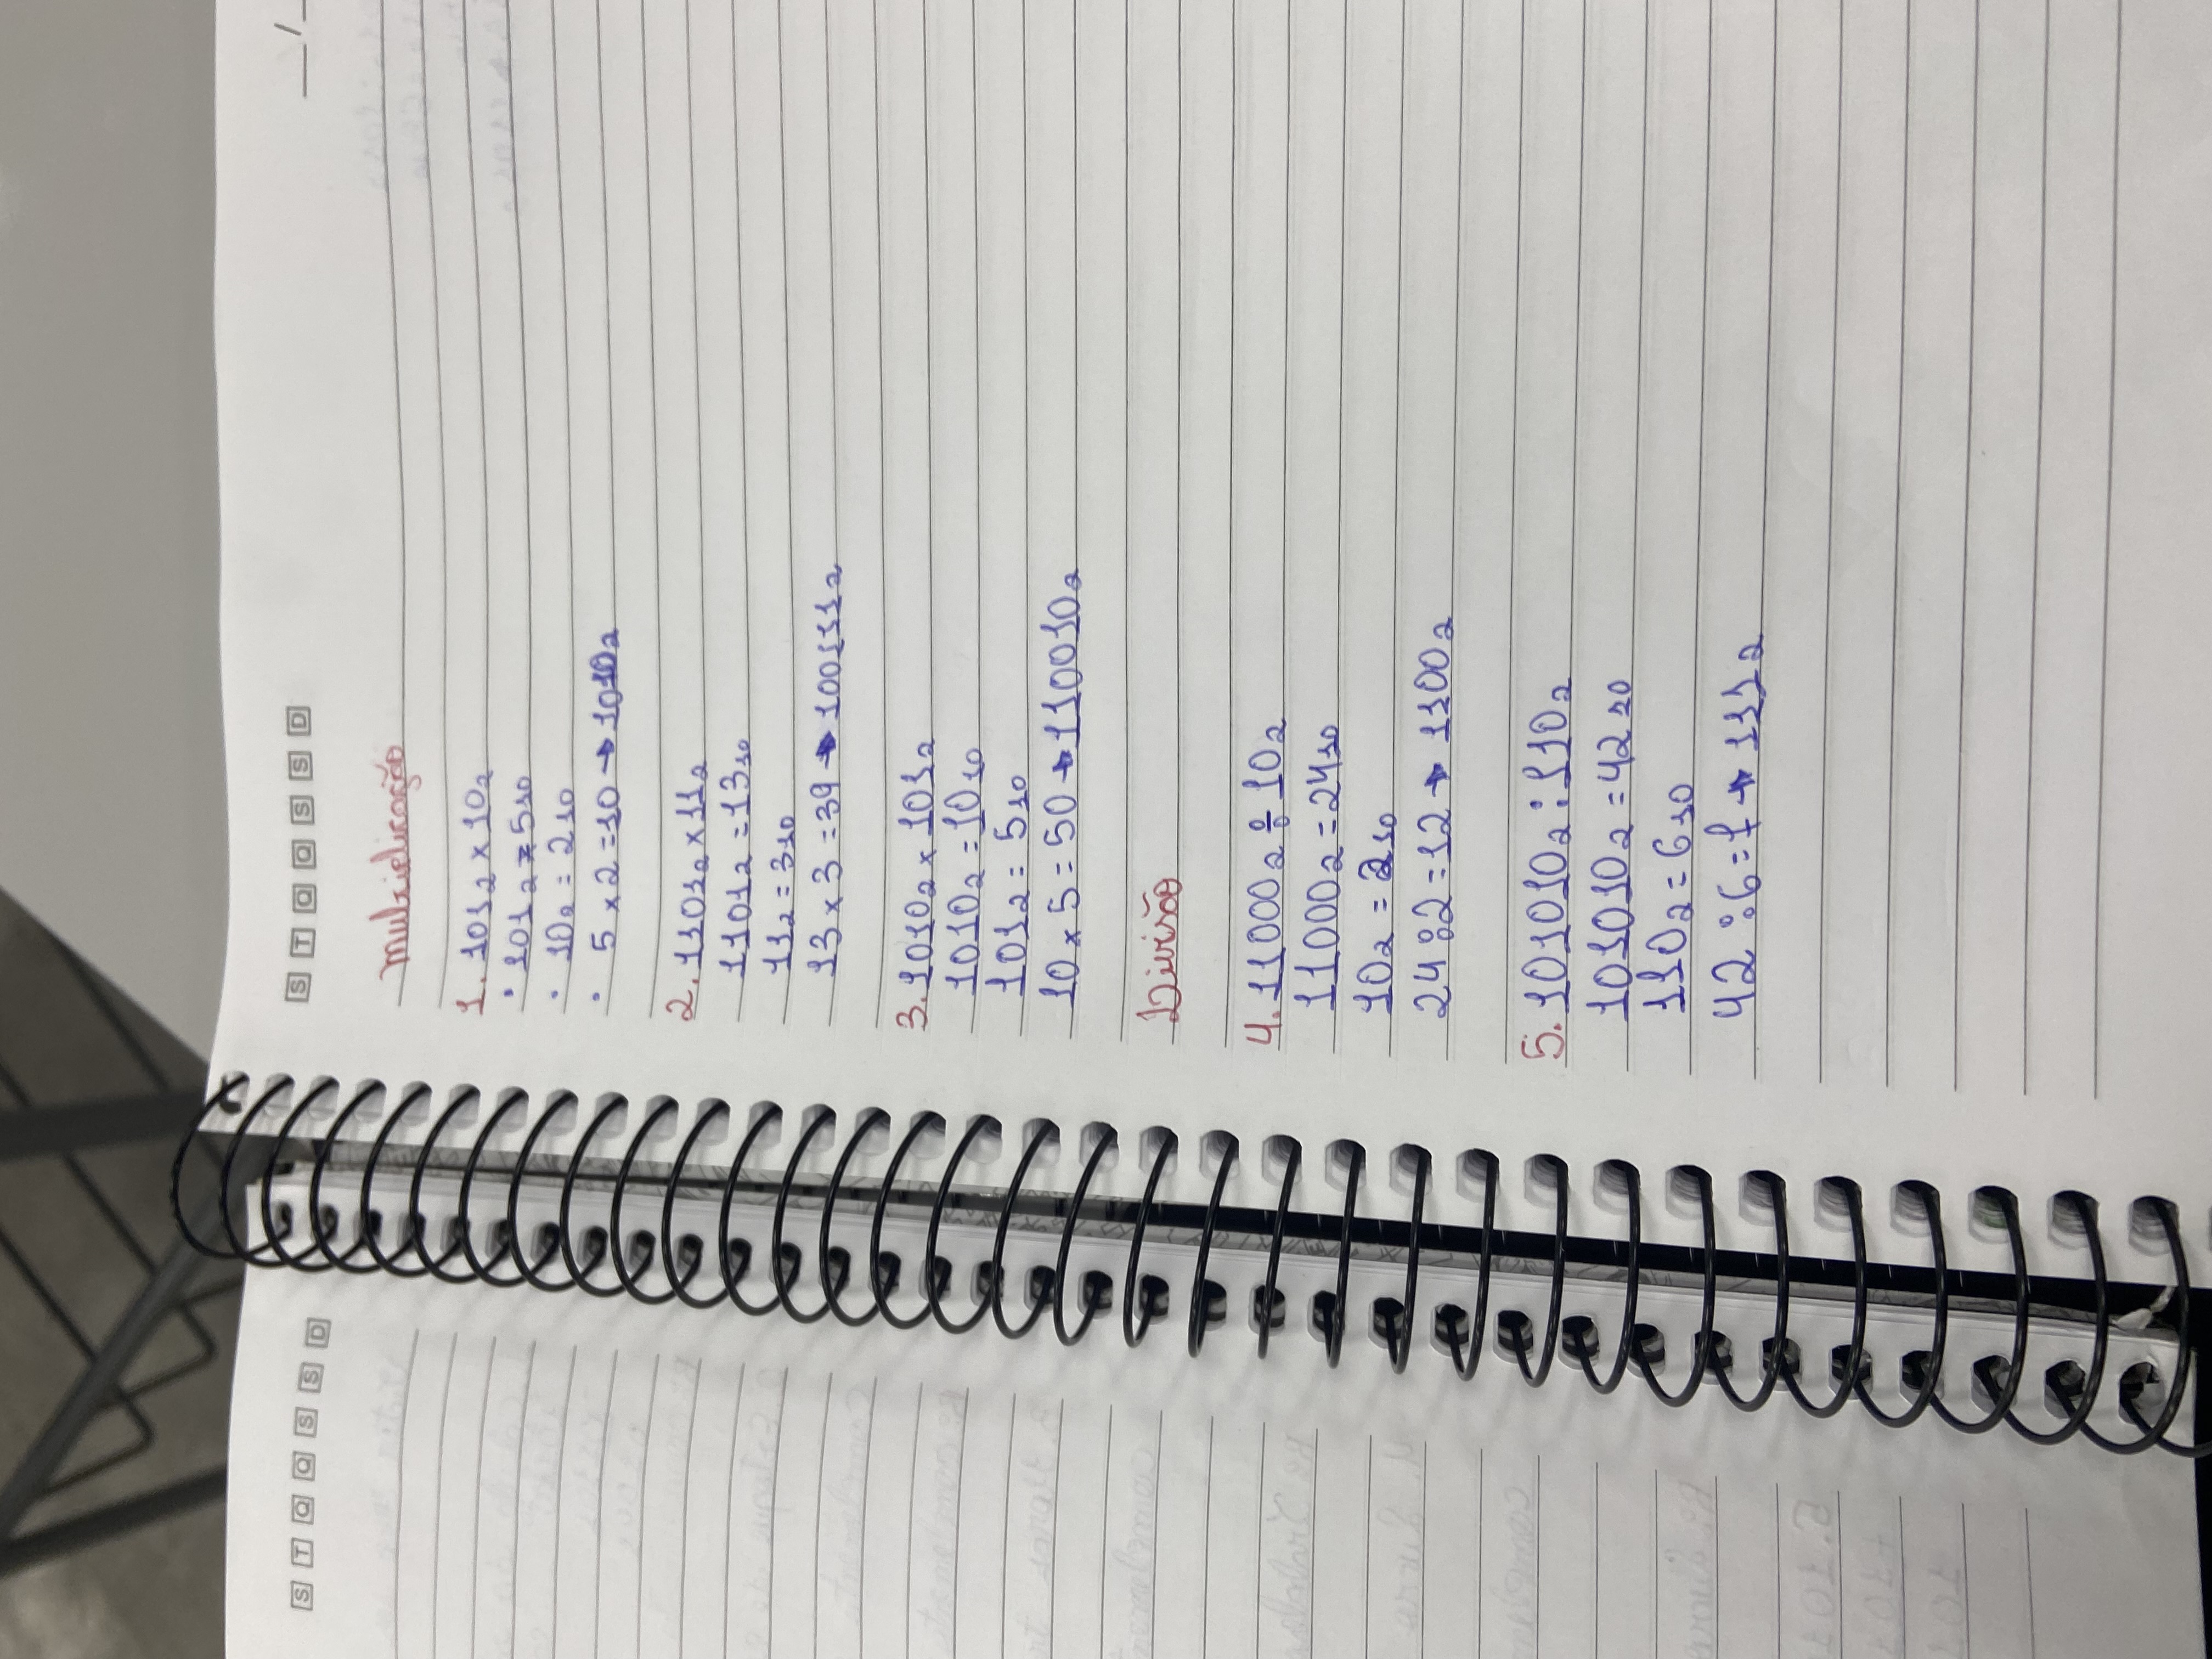 S T Q Q S S D
S T Q Q S S D
__/_
Multiplicação
1. 101₂ x 10₂
• 101₂ = 5₁₀
• 10₂ = 2₁₀
• 5 x 2 = 10 → 1010₂
2. 1101₂ x 11₂
1101₂ = 13₁₀
11₂ = 3₁₀
13 x 3 = 39 → 100111₂
3. 1010₂ x 101₂
1010₂ = 10₁₀
101₂ = 5₁₀
10 x 5 = 50 → 110010₂
Divisão
4. 11000₂ ÷ 10₂
11000₂ = 24₁₀
10₂ = 2₁₀
24 : 2 = 12 → 1100₂
5. 101010₂ : 110₂
101010₂ = 42₁₀
110₂ = 6₁₀
42 : 6 = 7 → 111₂